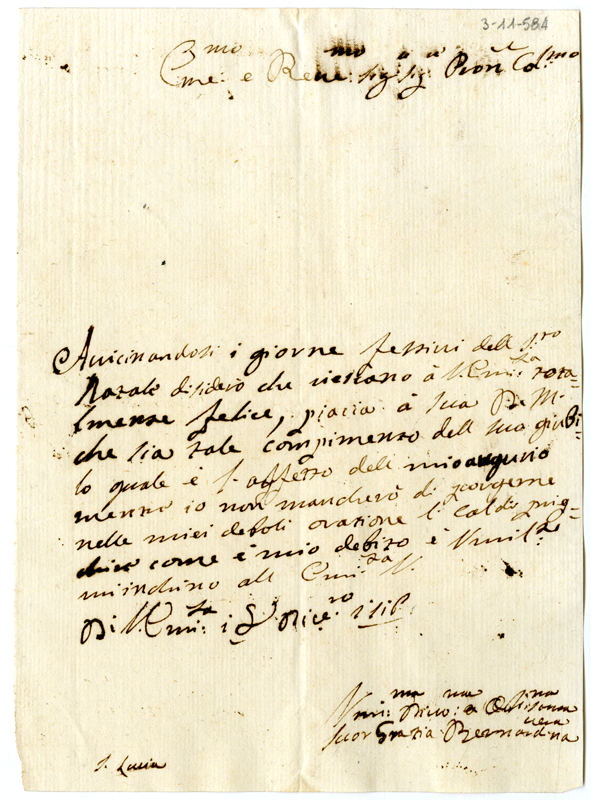 3-11-584
Emo e Reue:mo sig: sig: Pron Col:mo
Auicinandosi i giorne festiui dell S:to
Natale disidero che viesano à V. Emi:za tota-
lmente felice, piacia à sua De M.
che sia tale compimento dell sua giubi-
lo quale è l'affetto dell mio augurio
mentre io non mancherò di porgerne
nelle miei deboli oratione l'caldi prig-
come è mio debito è Vmil:te
minchino all Emi:za V.
Di V. Emi:za i Dice:ro
Vmi:ma Diuo:ma e
suor Grazia Bernardina
S. Lucia